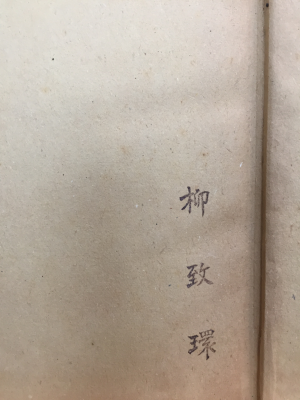 柳致環